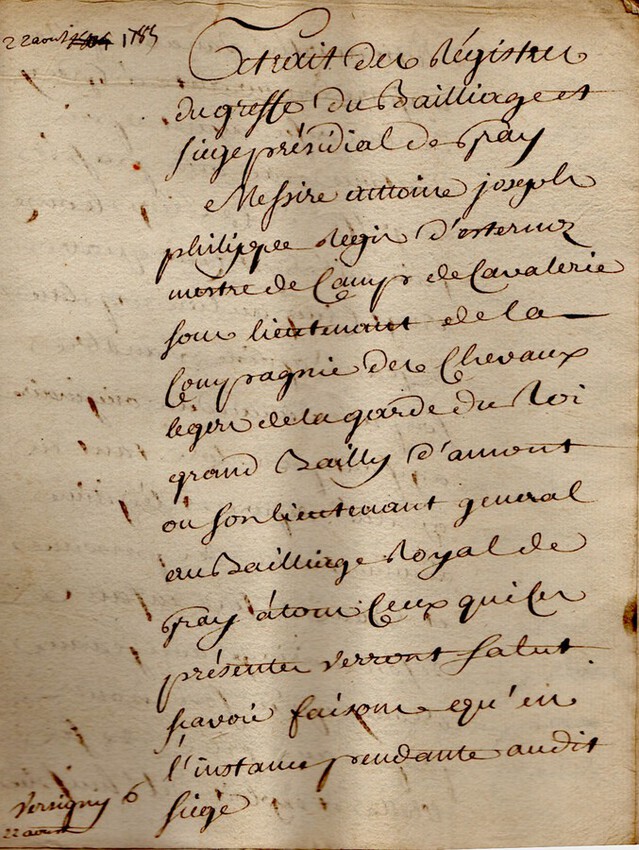 22 aoust 1785
Extrait des Régistres
du greffe du Bailliage et
siege présidial de gray
Messire antoine joseph
philippe Regis d'esternoz
mestre de Camp de Cavalerie
sous lieutenant de la
Compagnie des Chevaux
legers de la garde du Roi
grand Bailly d'amont
ou son lieutenant general
au Bailliage Royal de
gray à tous Ceux qui Ces
présentes verront salut
scavoir faisons qu'en
l'instance pendante audit
siege
Versigny 6
22 aoust